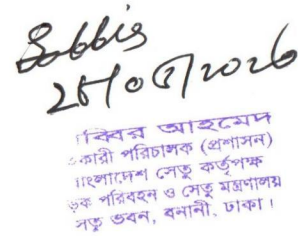 Sabbir
25/05/2026
াব্বির আহমেদ
কারী পরিচালক (প্রশাসন)
াংলাদেশ সেতু কর্তৃপক্ষ
ড়ক পরিবহন ও সেতু মন্ত্রণালয়
সেতু ভবন, বনানী, ঢাকা।